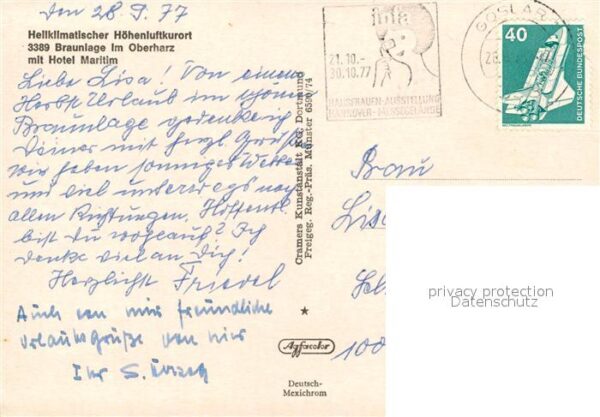 den 28.9.77
Heilklimatischer Höhenluftkurort
3389 Braunlage im Oberharz
mit Hotel Maritim
Liebe Lisa! Von einem
Herbst Urlaub im schönen
Braunlage gedenke ich
Deiner mit herzl. Grüße
wir haben sonniges Wetter
und viel unterwegs nach
allen Richtungen. Hoffentl.
bist du wohlauf? Ich
denke viel an Dich!
Herzlichst Friedel
Auch von mir freundliche
Urlaubsgrüße von hier
Ihr S.
Cramers Kunstanstalt KG, Dortmund
Freigeg. Reg.-Präs. Münster 6590/74
infa
21.10.-
30.10.77
HAUSFRAUEN-AUSSTELLUNG
HANNOVER-MESSEGELÄNDE
GOSLAR
40
DEUTSCHE BUNDESPOST
Frau
Lis
100
privacy protection
Datenschutz
Agfacolor
Deutsch-
Mexichrom